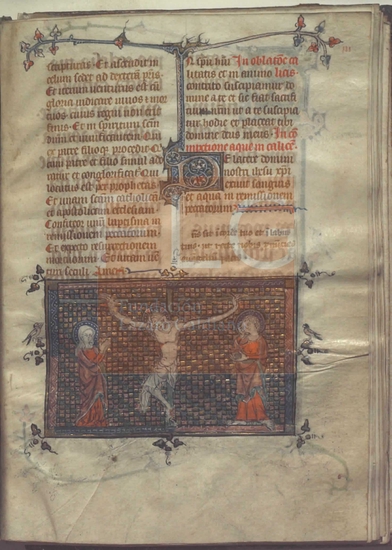 scripturas. Et ascendit in
celum sedet ad dexterā pris.
Et iterum venturus est cū
gloria iudicare vivos et mor
tuos cuius regni non erit
finis. Et in spiritum
dominū et vivificantem. Qui
ex patre filioqz procedit. Qui
cum patre et filio simul ad
oratur et conglorificat. Qui
locutus est per prophetas.
Et unam sanctam catholicā
et apostolicam ecclesiam.
Confiteor unū baptisma in
remissionem peccatorum.
Et expecto resurrectionem
mortuorū. Et vitam ven
turi seculi. Amen.
N spū In oblatōe ca
litatis et in animo licis
contrito suscipiamur do
mine a te et sic fiat sacrifi
cium ut a te suscipia
tur hodie et placeat tibi
domine deus meus. In
aque in calice.
E latere domini
nostri ihesu xpi
exiunt sanguis
et aqua in remissionem
peccatorum